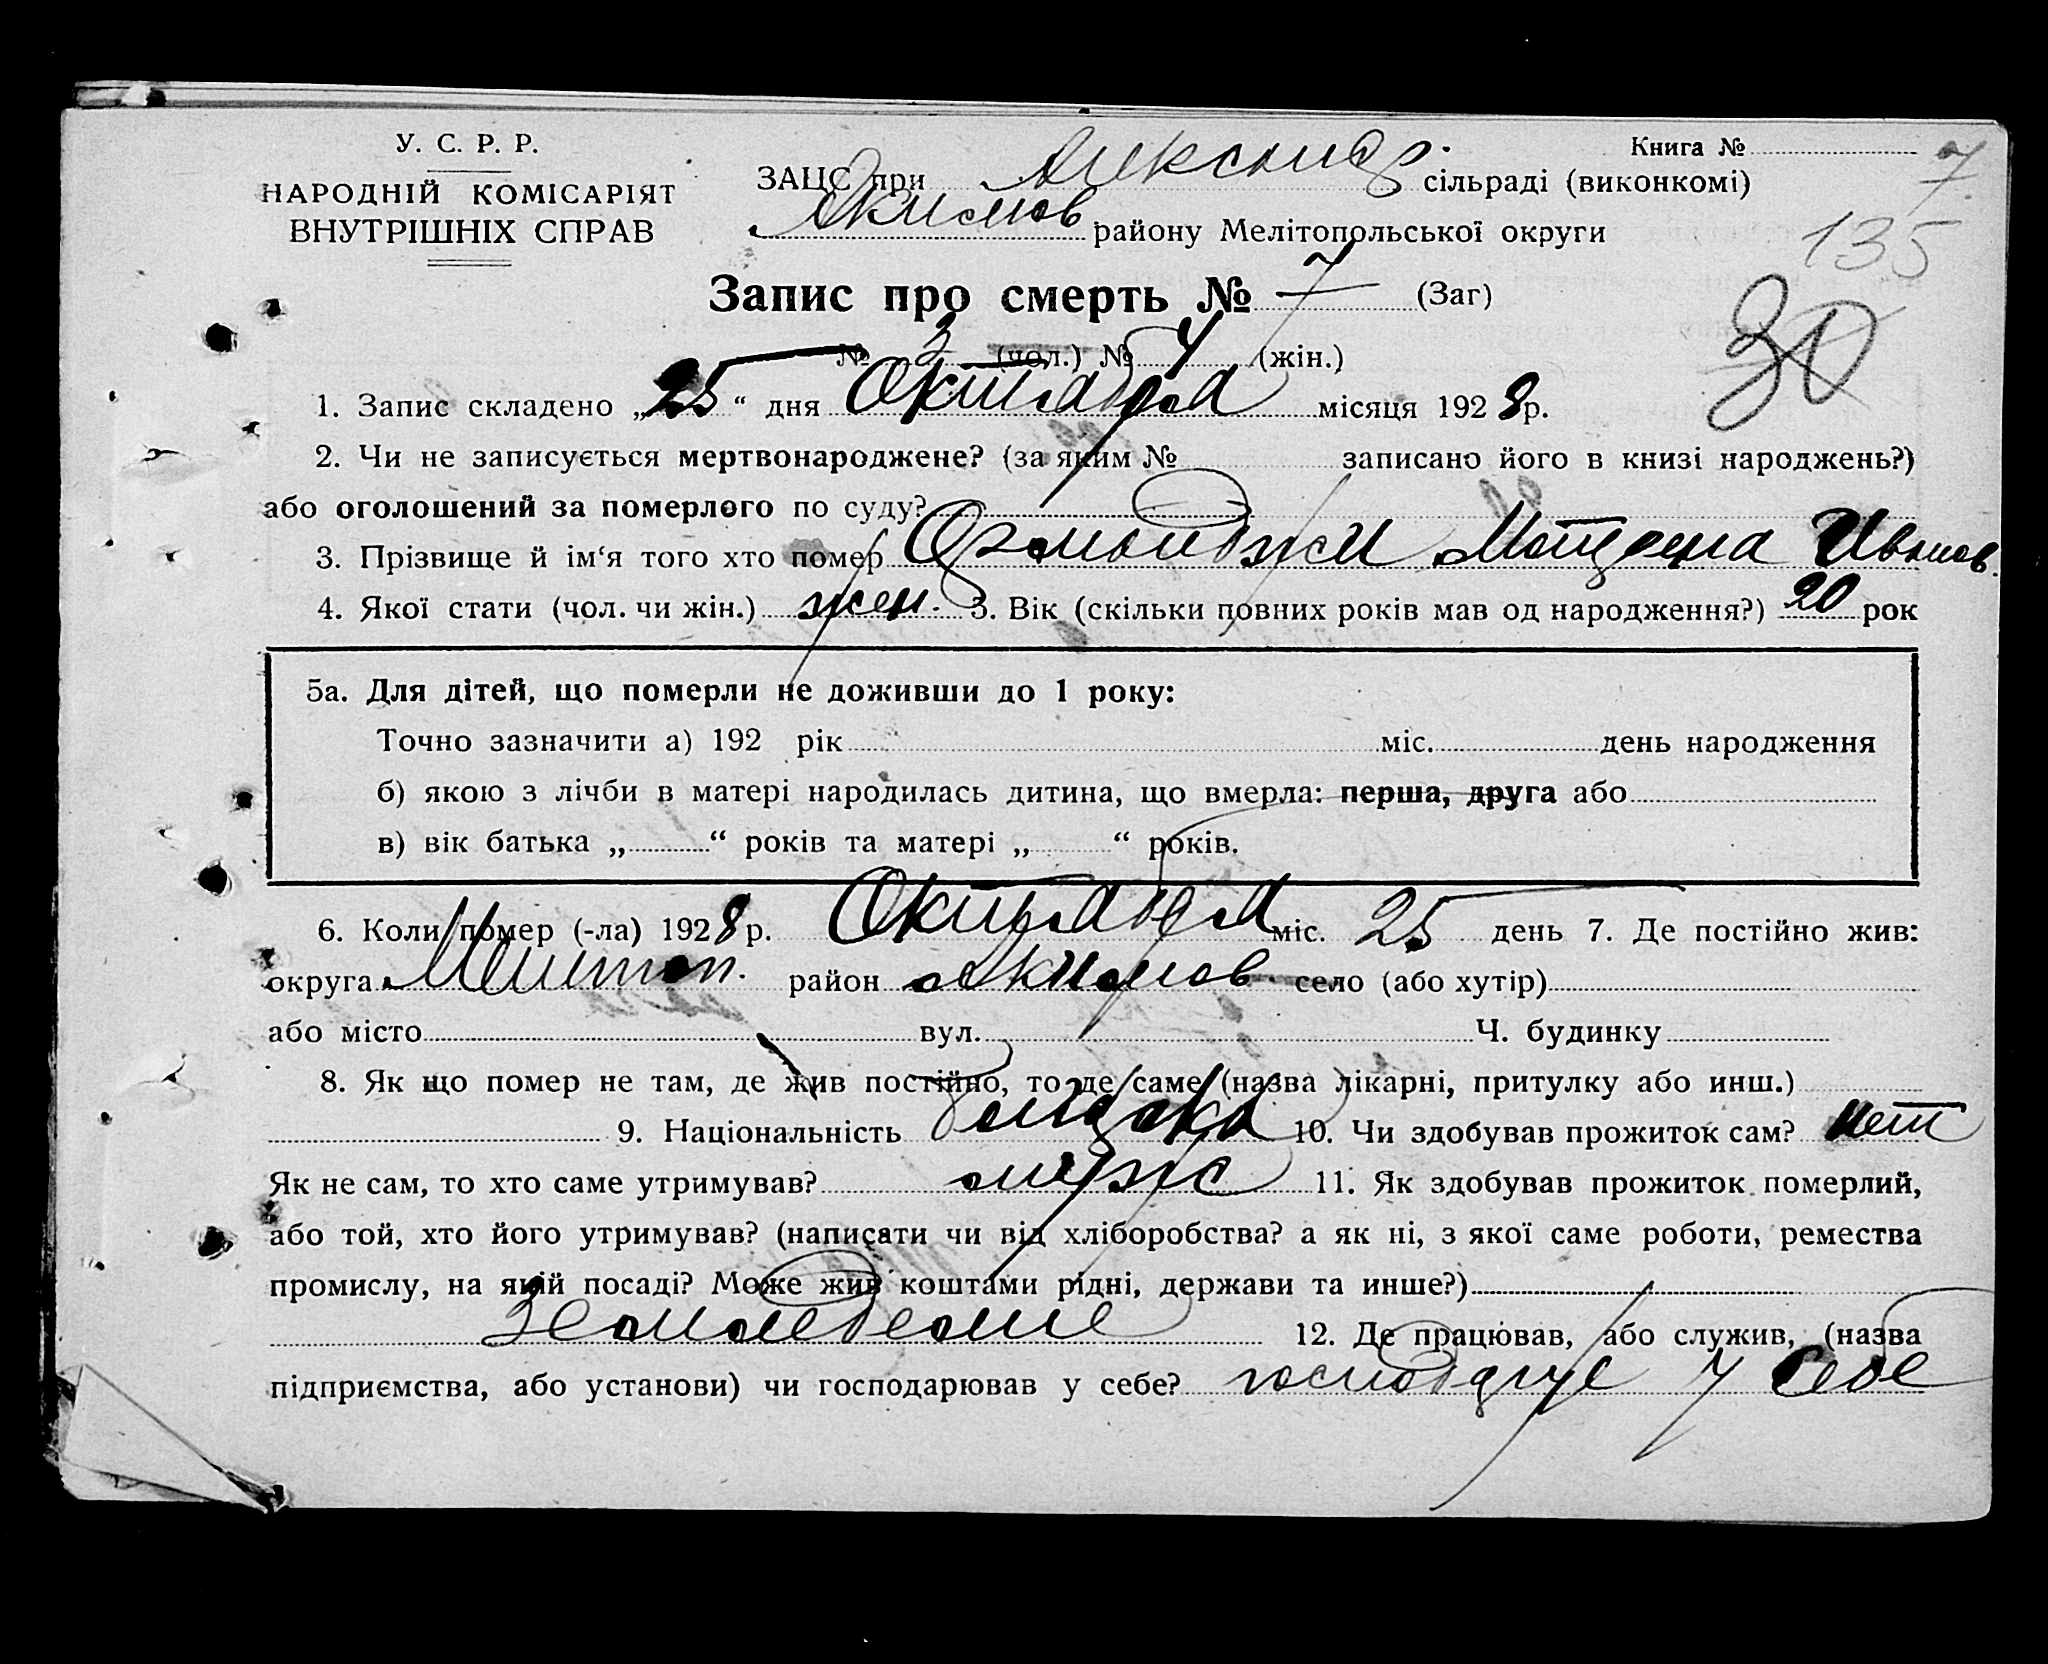 У. С. Р. Р.
НАРОДНІЙ КОМІСАРІЯТ
ВНУТРІШНІХ СПРАВ
Книга № 7
ЗАЦС при Александр. сільраді (виконкомі)
Акимов. району Мелітопольської округи
135
Запис про смерть № 7 (Заг)
30
№ 3 (чол.) № 4 (жін.)
1. Запис складено „25“ дня Октября місяця 1928 р.
2. Чи не записується мертвонароджене? (за яким № записано його в книзі народжень?)
або оголошений за померлого по суду?
3. Прізвище й ім‘я того хто помер Иванов.
4. Якої стати (чол. чи жін.) жен. 5. Вік (скільки повних років мав од народження?) 20 рок
5а. Для дітей, що померли не доживши до 1 року:
Точно зазначити а) 192 рік міс. день народження
б) якою з лічби в матері народилась дитина, що вмерла: перша, друга або
в) вік батька „ “ років та матері „ “ років.
6. Коли помер (-ла) 1928 р. Октября міс. 25 день 7. Де постійно жив:
округа Мелитоп. район Акимов. село (або хутір)
або місто вул. Ч. будинку
8. Як що помер не там, де жив постійно, то де саме (назва лікарні, притулку або инш.)
9. Національність болгарка 10. Чи здобував прожиток сам? нет
Як не сам, то хто саме утримував? муж 11. Як здобував прожиток померлий,
або той, хто його утримував? (написати чи від хліборобства? а як ні, з якої саме роботи, ремества
промислу, на якій посаді? Може жив коштами рідні, держави та инше?)
Земледелие 12. Де працював, або служив, (назва
підприємства, або установи) чи господарював у себе? у себе